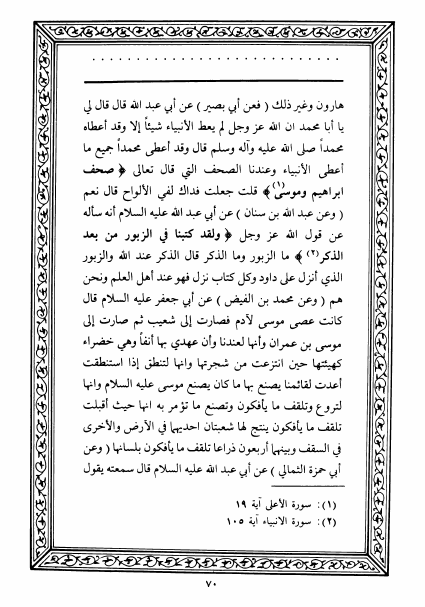 هارون وغير ذلك ( فعن أبي بصير ) عن أبي عبد الله قال قال لي
يا أبا محمد ان الله عز وجل لم يعط الأنبياء شيئاً إلا وقد أعطاه
محمداً صلى الله عليه وآله وسلم قال وقد أعطى محمداً جميع ما
أعطى الأنبياء وعندنا الصحف التي قال تعالى ﴿ صحف
ابراهيم وموسى(١)﴾ قلت جعلت فداك لفي الألواح قال نعم
( وعن عبد الله بن سنان ) عن أبي عبد الله عليه السلام أنه سأله
عن قول الله عز وجل ﴿ ولقد كتبنا في الزبور من بعد
الذكر(٢)﴾ ما الزبور وما الذكر قال الذكر عند الله والزبور
الذي أنزل على داود وكل كتاب نزل فهو عند أهل العلم ونحن
هم ( وعن محمد بن الفيض ) عن أبي جعفر عليه السلام قال
كانت عصى موسى لآدم فصارت إلى شعيب ثم صارت إلى
موسى بن عمران وأنها لعندنا وأن عهدي بها أنفاً وهي خضراء
كهيئتها حين انتزعت من شجرتها وانها لتنطق إذا استنطقت
أعدت لقائمنا يصنع بها ما كان يصنع موسى عليه السلام وانها
لتروع وتلقف ما يأفكون وتصنع ما تؤمر به انها حيث أقبلت
تلقف ما يأفكون ينتج لها شعبتان احديهما في الأرض والأخرى
في السقف وبينهما أربعون ذراعا تلقف ما يأفكون بلسانها ( وعن
أبي حمزة الثمالي ) عن أبي عبد الله عليه السلام قال سمعته يقول
(١): سورة الأعلى آية ١٩
(٢): سورة الانبياء آية ١٠٥
٧٠